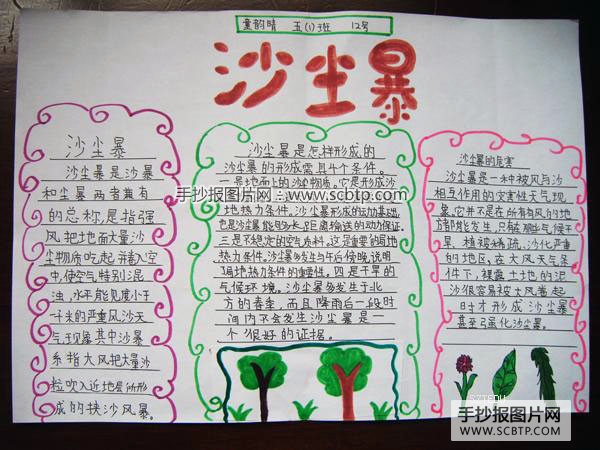 童韵晴 五(1)班 12号
沙尘暴
沙尘暴
沙尘暴是沙暴
和尘暴两者兼有
的总称,是指强
风把地面大量沙
尘物质吹起并卷入空
中,使空气特别混
浊,水平能见度小于
一千米的严重风沙天
气现象其中沙暴
系指大风把大量沙
粒吹入近地层所形
成的挟沙风暴。
沙尘暴是怎样形成的
沙尘暴的形成需具4个条件。
一是地面上的沙尘物质。它是形成沙
手抄报图片网—www.scbtp.com
地热力条件。沙尘暴形成的动力基础,
也是沙尘暴能够长距离输送的动力保证。
三是不稳定的空气质料,这是重要的局地
热力条件。沙尘暴多发生于午后傍晚,说明
了局地热力条件的重要性。四是干旱的
气候环境。沙尘暴多发生于北
方的春季,而且降雨后一段时
间内不会发生沙尘暴是一
个很好的证据。
沙尘暴的危害
沙尘暴是一种被风与沙
相互作用的灾害性天气现
象,它并不是在所有有风的地
方都能发生,只有那些气候干
旱、植被稀疏、沙化严重
的地区,在大风天气条
件下,裸露土地的泥
沙很容易被大风卷起
时才形成沙尘暴
甚至强化沙尘暴。
手抄报图片网
WWW.SCBTP.COM